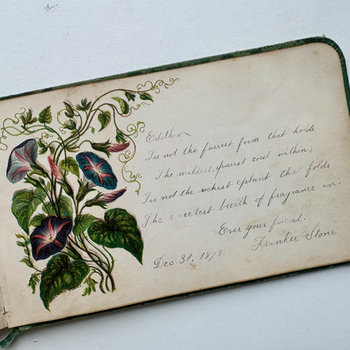 Edith
Tis not the fairest form that holds
The mildest, purest soul within;
Tis not the richest plant that folds
The sweetest breath of fragrance in.
Ever your friend.
Frankie Stone
Dec 31, 1878.